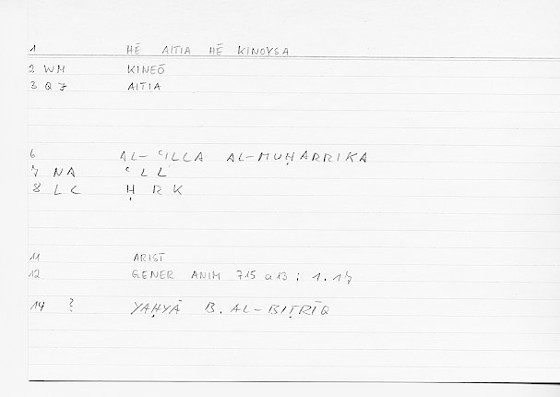 1 HĒ AITIA HĒ KINOYSA
2 WM KINEŌ
3 QJ AITIA
6 AL-ʿILLA AL-MUḤARRIKA
7 NA ʿLL
8 LC ḤRK
11 ARIST
12 GENER ANIM 715 a13 : 1.17
14 ? YAḤYĀ B. AL-BIṬRĪQ